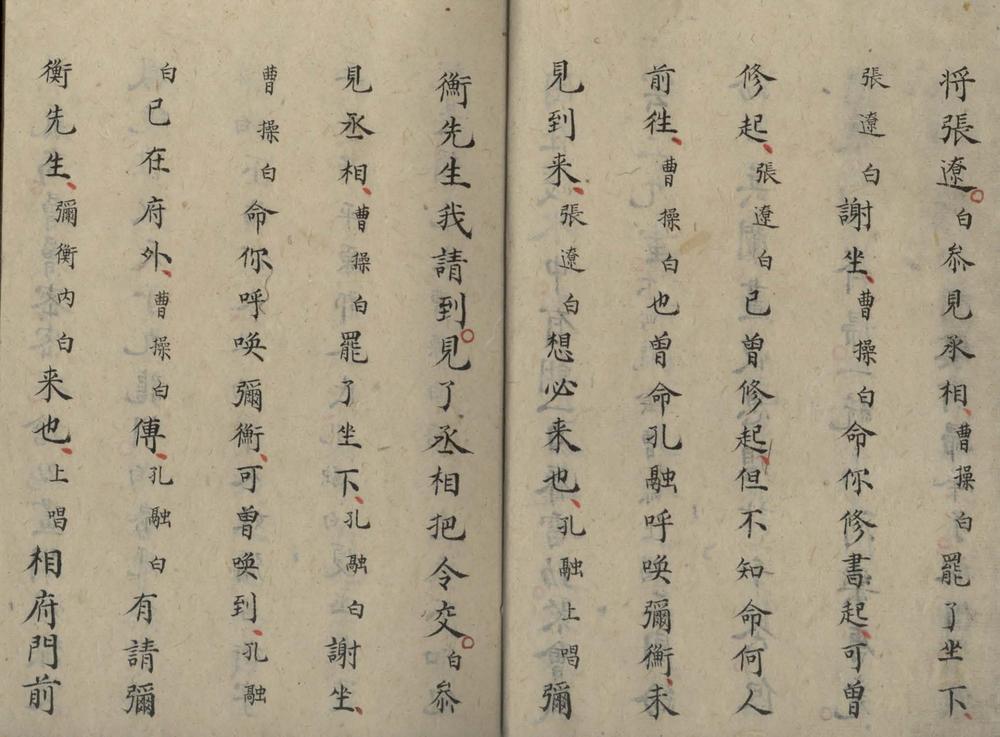 将張遼白叅見丞相曹操白罷了坐下
張遼白謝坐曹操白命你修書起可曽
修起張遼白已曽修起但不知命何人
前徃曹操白也曽命孔融呼唤彌衡未
見到来張遼白想必来也孔融上唱彌
衡先生我請到見了丞相把令交白叅
見丞相曹操白罷了坐下孔融白謝坐
曹操白命你呼唤彌衡可曽唤到孔融
白已在府外曹操白傳孔融白有請彌
衡先生彌衡内白来也上唱相府門前